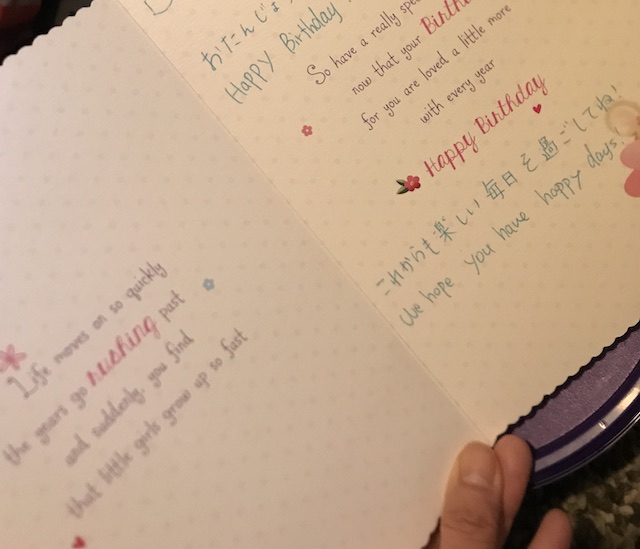 Life moves on so quickly
the years go rushing past
and suddenly you find
that little girls grow up so fast
おたんじょ
Happy Birthday
So have a really spe
now that your Birth
for you are loved a little more
with every year
Happy Birthday
これからも楽しい毎日を過ごしてね!
We hope you have happy days!